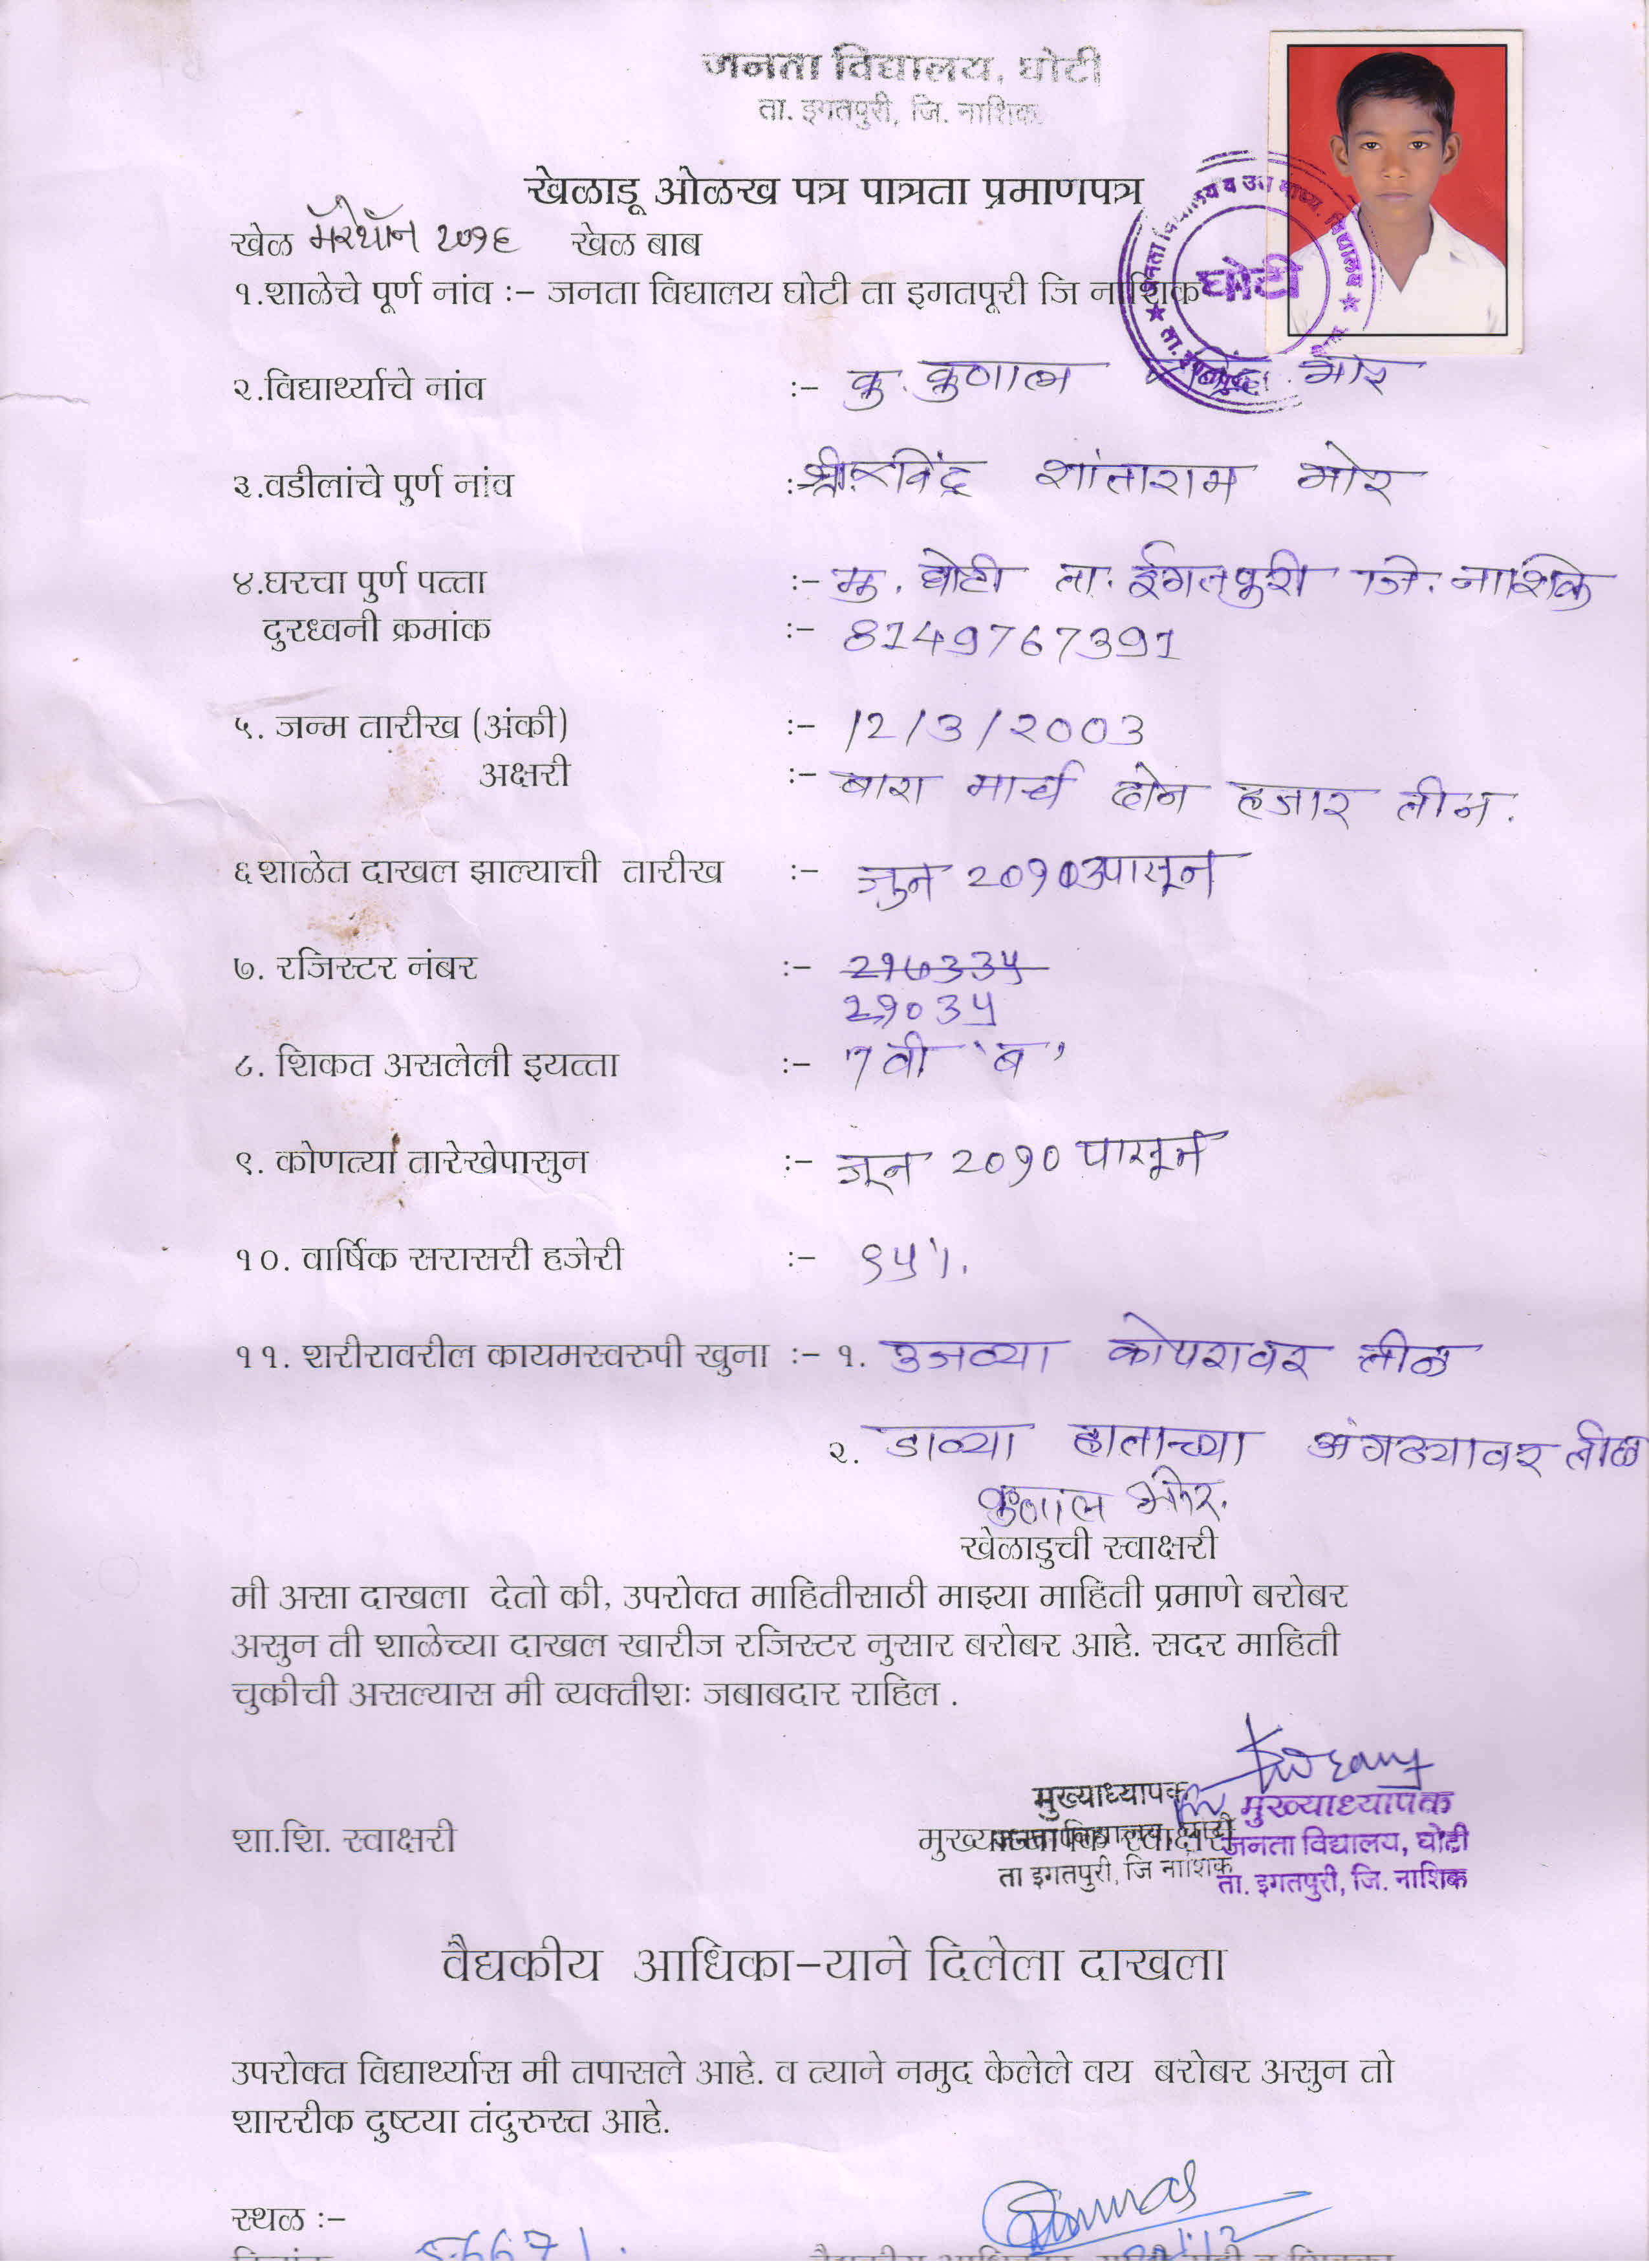 जनता विद्यालय, घोटी
ता. इगतपुरी, जि. नाशिक.
खेळाडू ओळख पत्र पात्रता प्रमाणपत्र
खेळ मॅरेथॉन २०१६ खेळ बाब
१.शाळेचे पूर्ण नांव :– जनता विद्यालय घोटी ता इगतपूरी जि नाशिक
घोटी
२.विद्यार्थ्याचे नांव :– कु. कुणाल मोरे
३.वडीलांचे पुर्ण नांव :– श्री. रविंद्र शांताराम मोरे
४.घरचा पुर्ण पत्ता :– मु. घोटी ता. ईगतपुरी जि. नाशिक
दुरध्वनी क्रमांक :– 8149767391
५. जन्म तारीख (अंकी) :– 12/3/2003
अक्षरी :– बारा मार्च दोन हजार तीन.
६शाळेत दाखल झाल्याची तारीख :– जुन २०१० पासून
७. रजिस्टर नंबर :–
२१०३५
८. शिकत असलेली इयत्ता :– 7 वी 'ब'
९. कोणत्या तारेखेपासुन :– जून २०१० पासून
१०. वार्षिक सरासरी हजेरी :– ९५%.
११. शरीरावरील कायमस्वरुपी खुना :– १. उजव्या कोपरावर तीळ
२. डाव्या हाताच्या अंगठ्यावर तीळ
कुणाल मोरे.
खेळाडुची स्वाक्षरी
मी असा दाखला देतो की, उपरोक्त माहितीसाठी माझ्या माहिती प्रमाणे बरोबर
असुन ती शाळेच्या दाखल खारीज रजिस्टर नुसार बरोबर आहे. सदर माहिती
चुकीची असल्यास मी व्यक्तीशः जबाबदार राहिल .
मुख्याध्यापक मुख्याध्यापक
शा.शि. स्वाक्षरी मुख्याध्यापक स्वाक्षरी जनता विद्यालय, घोटी
ता इगतपुरी, जि नाशिक ता. इगतपुरी, जि. नाशिक
वैद्यकीय आधिका–याने दिलेला दाखला
उपरोक्त विद्यार्थ्यास मी तपासले आहे. व त्याने नमुद केलेले वय बरोबर असुन तो
शाररीक दुष्टया तंदुरुस्त आहे.
स्थळ :–